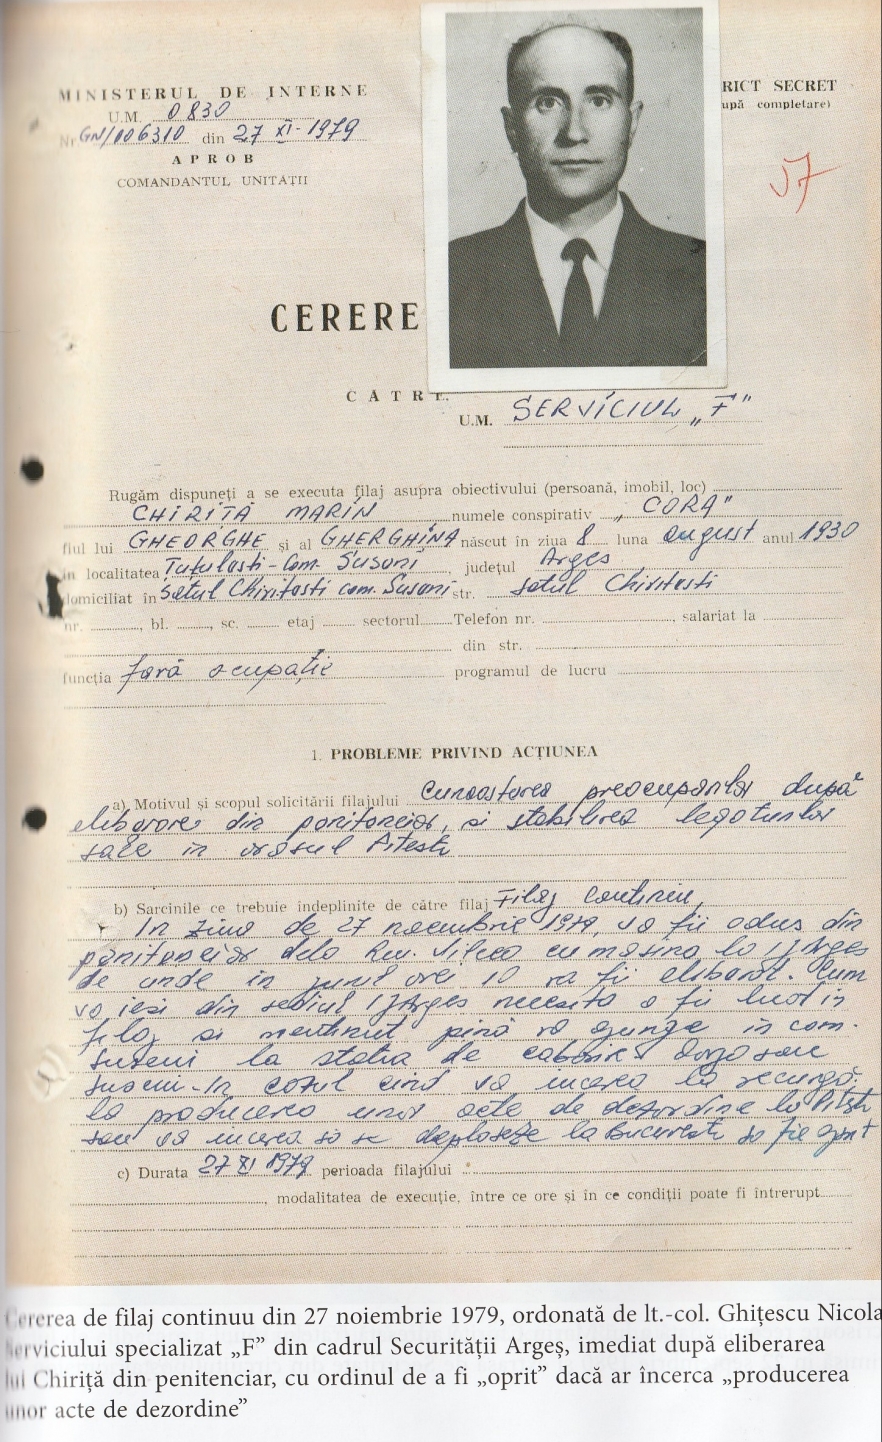 MINISTERUL DE INTERNE
U.M. 0830
Nr. GN/006310 din 27 XI-1979
APROB
COMANDANTUL UNITĂȚII
RICT SECRET
upă completare)
57
CERERE
CĂTRE
U.M. SERVICIUL „F"
Rugăm dispuneți a se executa filaj asupra obiectivului (persoană, imobil, loc)
CHIRIȚĂ MARIN numele conspirativ „CORA"
fiul lui GHEORGHE și al GHERGHINA născut în ziua 8 luna august anul 1930
în localitatea Țuțulești - Com. Suseni, județul Argeș
domiciliat în Satul Chiritești com. Suseni str. satul Chiritești
nr. , bl. , sc. etaj sectorul Telefon nr. , salariat la
din str.
funcția fără ocupație programul de lucru
1. PROBLEME PRIVIND ACȚIUNEA
a) Motivul și scopul solicitării filajului Cunoașterea preocupărilor după
eliberare din penitenciar, și stabilirea legăturilor
sale în orașul Pitești
b) Sarcinile ce trebuie îndeplinite de către filaj Filaj continuu,
În ziua de 27 noembrie 1979, va fi adus din
penitenciar dela Rm. Vîlcea cu mașina la IJ Argeș
de unde în jurul orei 10 va fi eliberat. Cum
va ieși din sediul IJ Argeș necesită a fi luat în
filaj și menținut pînă va ajunge în com.
Suseni la stația de
Suseni - În cazul cînd va încerca să recurgă
la producerea unor acte de dezordine la Pitești
sau va încerca să se deplaseze la București să fie oprit
c) Durata 27 XI 1979 perioada filajului
, modalitatea de execuție, între ce ore și în ce condiții poate fi întrerupt
Cererea de filaj continuu din 27 noiembrie 1979, ordonată de lt.-col. Ghițescu Nicola
Serviciului specializat „F” din cadrul Securității Argeș, imediat după eliberarea
lui Chiriță din penitenciar, cu ordinul de a fi „oprit” dacă ar încerca „producerea
unor acte de dezordine”